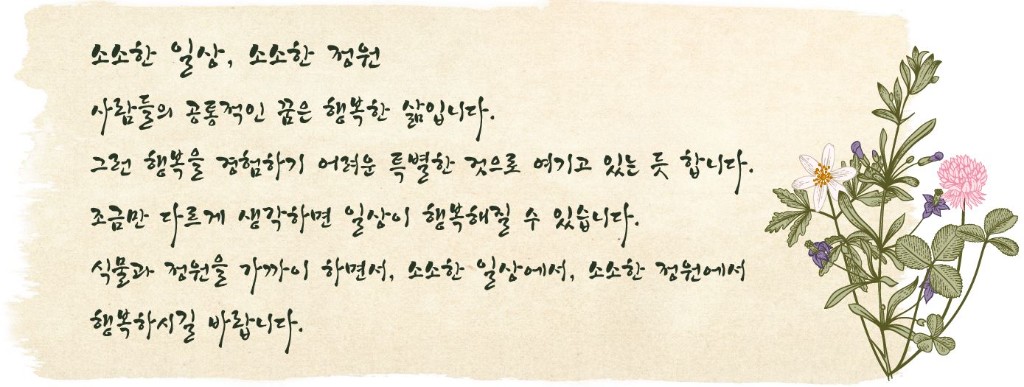 소소한 일상, 소소한 정원
사람들의 공통적인 꿈은 행복한 삶입니다.
그런 행복을 경험하기 어려운 특별한 것으로 여기고 있는 듯 합니다.
조금만 다르게 생각하면 일상이 행복해질 수 있습니다.
식물과 정원을 가까이 하면서, 소소한 일상에서, 소소한 정원에서
행복하시길 바랍니다.